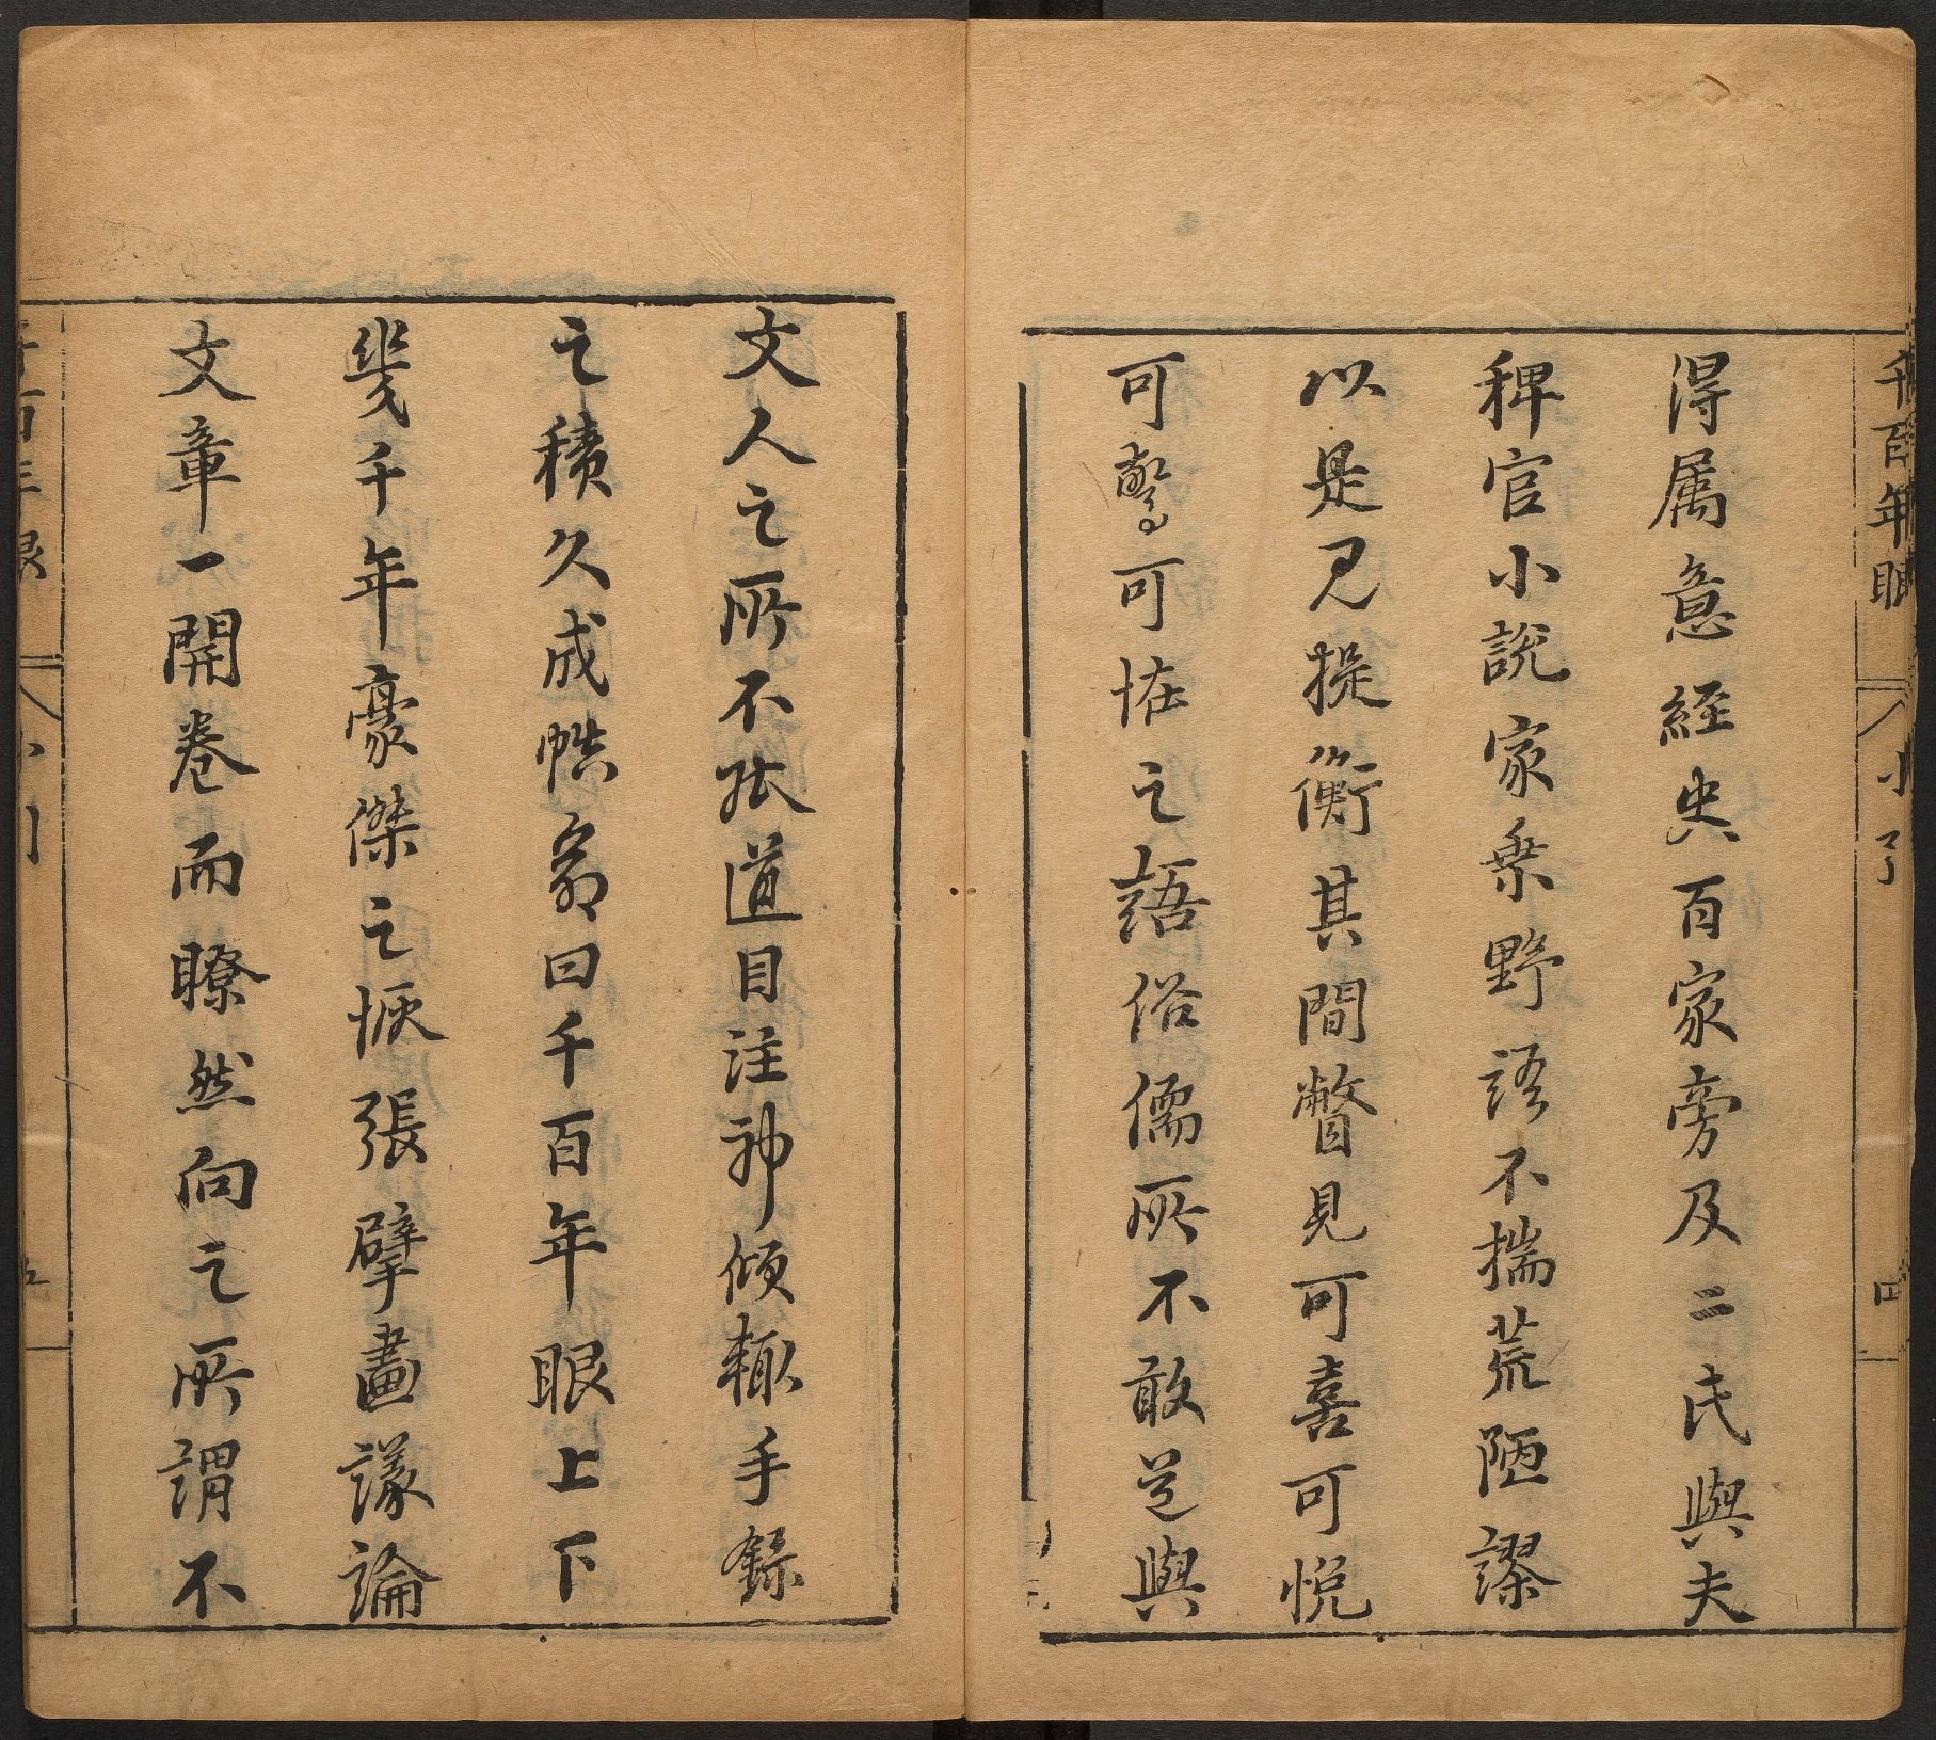 千百年眼 小引 四
得属意經史百家旁及二氏與夫
稗官小說家乘野語不揣荒陋謬
以是見提衡其間瞥見可喜可悅
可驚可怪之語俗儒所不敢道與
文人之所不能道目注神傾輒手錄
之積久成帙命曰千百年眼上下
幾千年豪傑之恢張擘畫議論
文章一開卷而瞭然向之所謂不
千百年眼 小引 五